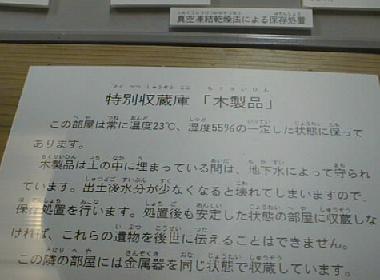 真空凍結乾燥法による保存処置
特別収蔵庫「木製品」
この部屋は常に温度23℃、湿度55%の一定した状態に保って
あります。
木製品は土の中に埋まっている間は、地下水によって守られ
ています。出土後水分が少なくなると壊れてしまいますので、
保存処置を行います。処置後も安定した状態の部屋に収蔵しな
ければ、これらの遺物を後世に伝えることはできません。
この隣の部屋には金属器を同じ状態で収蔵しています。